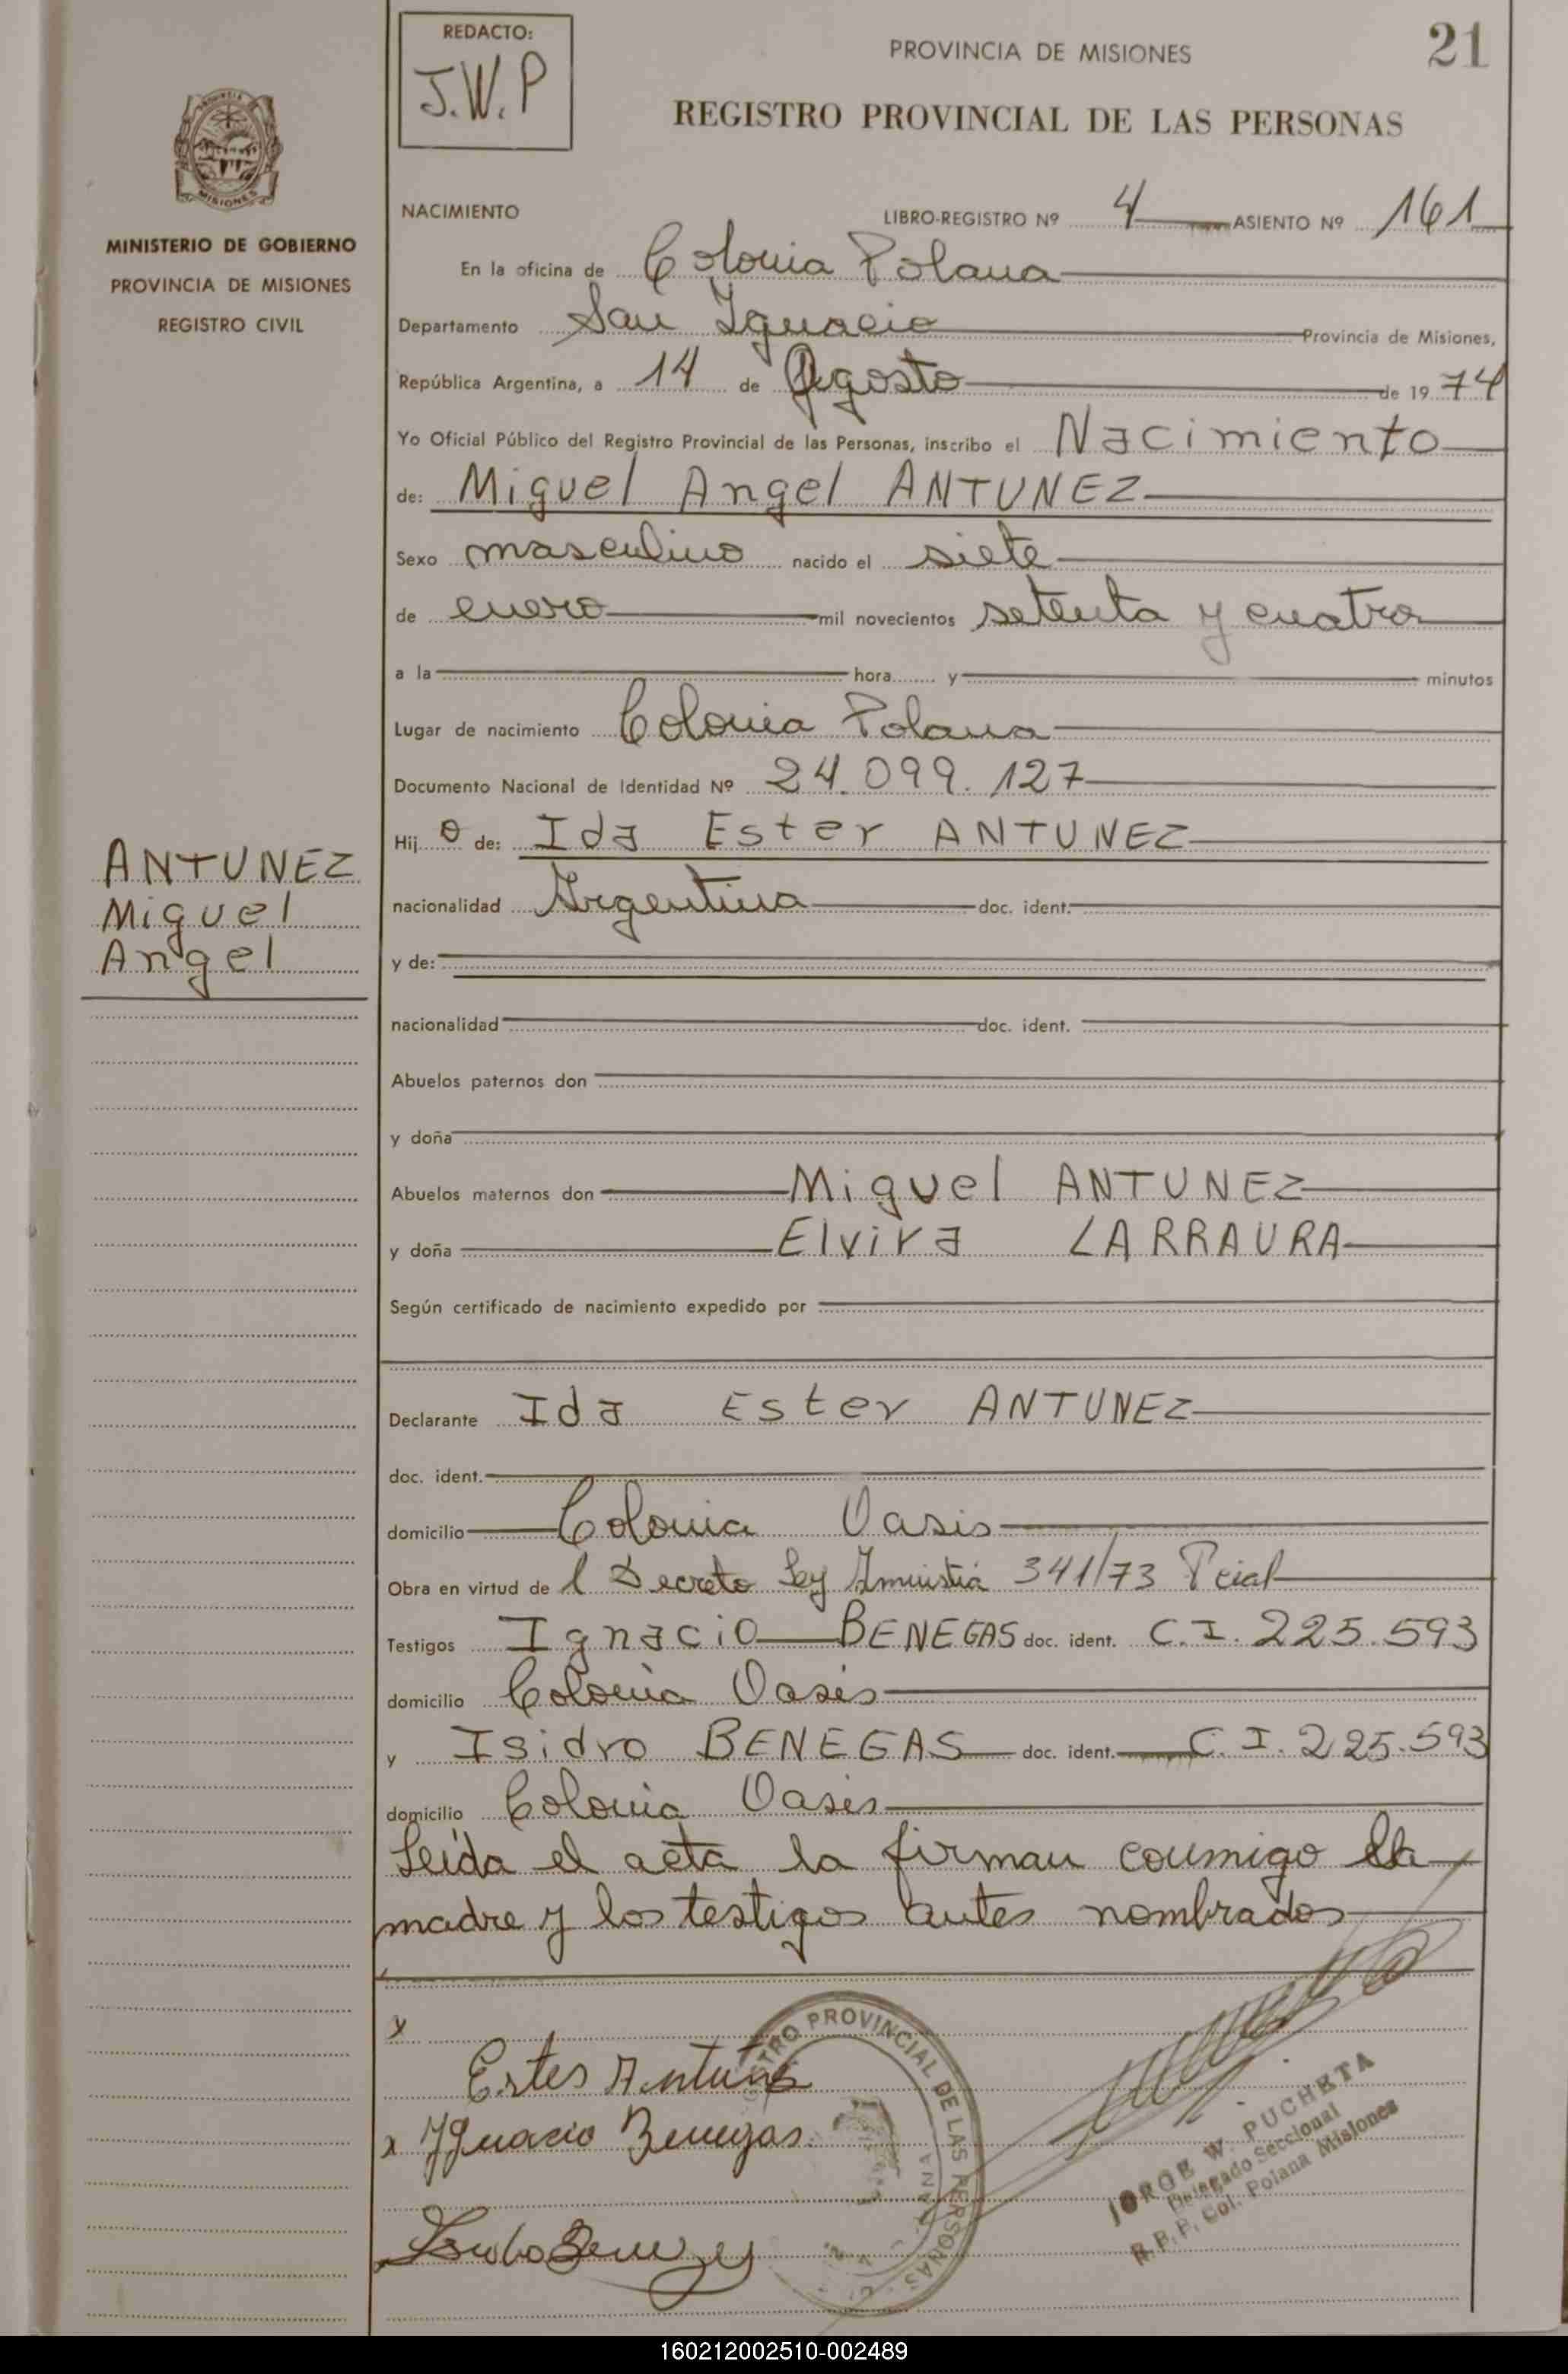 REDACTO:
J.W.P
PROVINCIA DE MISIONES
21
REGISTRO PROVINCIAL DE LAS PERSONAS
MISIONES
MINISTERIO DE GOBIERNO
PROVINCIA DE MISIONES
REGISTRO CIVIL
NACIMIENTO LIBRO-REGISTRO Nº 4 ASIENTO Nº 161
En la oficina de Colonia Polana
Departamento San Ignacio Provincia de Misiones,
República Argentina, a 14 de Agosto de 1974
Yo Oficial Público del Registro Provincial de las Personas, inscribo el Nacimiento
de: Miguel Angel ANTUNEZ
Sexo masculino nacido el siete
de enero mil novecientos setenta y cuatro
a la hora y minutos
Lugar de nacimiento Colonia Polana
Documento Nacional de Identidad Nº 24.099.127
Hijo de: Ida Ester ANTUNEZ
ANTUNEZ
Miguel
Angel
nacionalidad Argentina doc. ident.
y de:
nacionalidad doc. ident.
Abuelos paternos don
y doña
Abuelos maternos don Miguel ANTUNEZ
y doña Elvira LARRAURA
Según certificado de nacimiento expedido por
Declarante Ida Ester ANTUNEZ
doc. ident.
domicilio Colonia Oasis
Obra en virtud de l Decreto Ley Amnistia 341/73 Pcial
Testigos Ignacio BENEGAS doc. ident. C.I. 225.593
domicilio Colonia Oasis
y Isidro BENEGAS doc. ident. C.I. 225.593
domicilio Colonia Oasis
Leída el acta la firman conmigo la
madre y los testigos antes nombrados
x
Ester Antunez
x Ignacio Benegas
REGISTRO PROVINCIAL DE LAS PERSONAS
JORGE W. PUCHETA
Delegado Seccional
R.P.P. Col. Polana Misiones
160212002510-002489